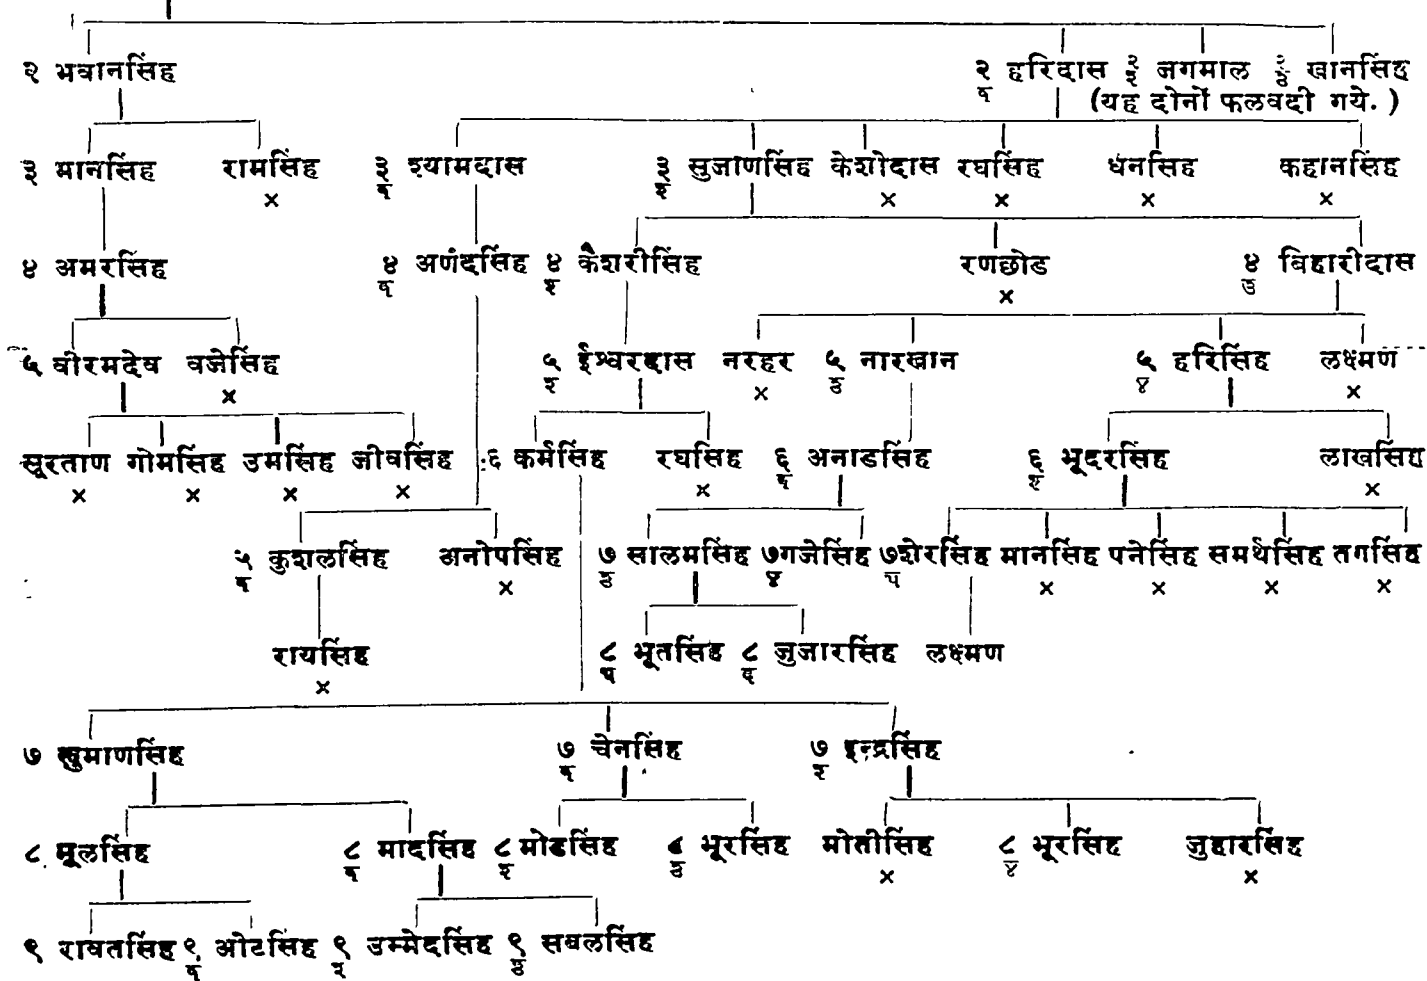 २ भवानसिंह २ हरिदास जगमाल खानसिंह
(यह दोनों फलवदी गये.)
३ मानसिंह रामसिंह ३ श्यामदास ३ सुजाणसिंह केशोदास रघसिंह धनसिंह कहानसिंह
× × × × ×
४ अमरसिंह ४ अणंदसिंह ४ केशरीसिंह रणछोड ४ बिहारीदास
×
५ वीरमदेव वजेसिंह ५ ईश्वरदास नरहर ५ नारखान ५ हरिसिंह लक्ष्मण
× × ×
सूरताण गोमसिंह उमसिंह जीवसिंह ६ कर्मसिंह रघसिंह ६ अनाडसिंह ६ भूदरसिंह लाखसिंह
× × × × × ×
५ कुशलसिंह अनोपसिंह ७ सालमसिंह ७ गजेसिंह ७ शेरसिंह मानसिंह पनेसिंह समर्थसिंह तगसिंह
× × × × ×
रायसिंह ८ भूतसिंह ८ जुजारसिंह लक्ष्मण
×
७ खुमाणसिंह ७ चेनसिंह ७ इन्द्रसिंह
८ मूलसिंह ८ मादसिंह ८ मोडसिंह ८ भूरसिंह मोतीसिंह ८ भूरसिंह जुहारसिंह
× ×
९ रावतसिंह ९ ओटसिंह ९ उम्मेदसिंह ९ सबलसिंह